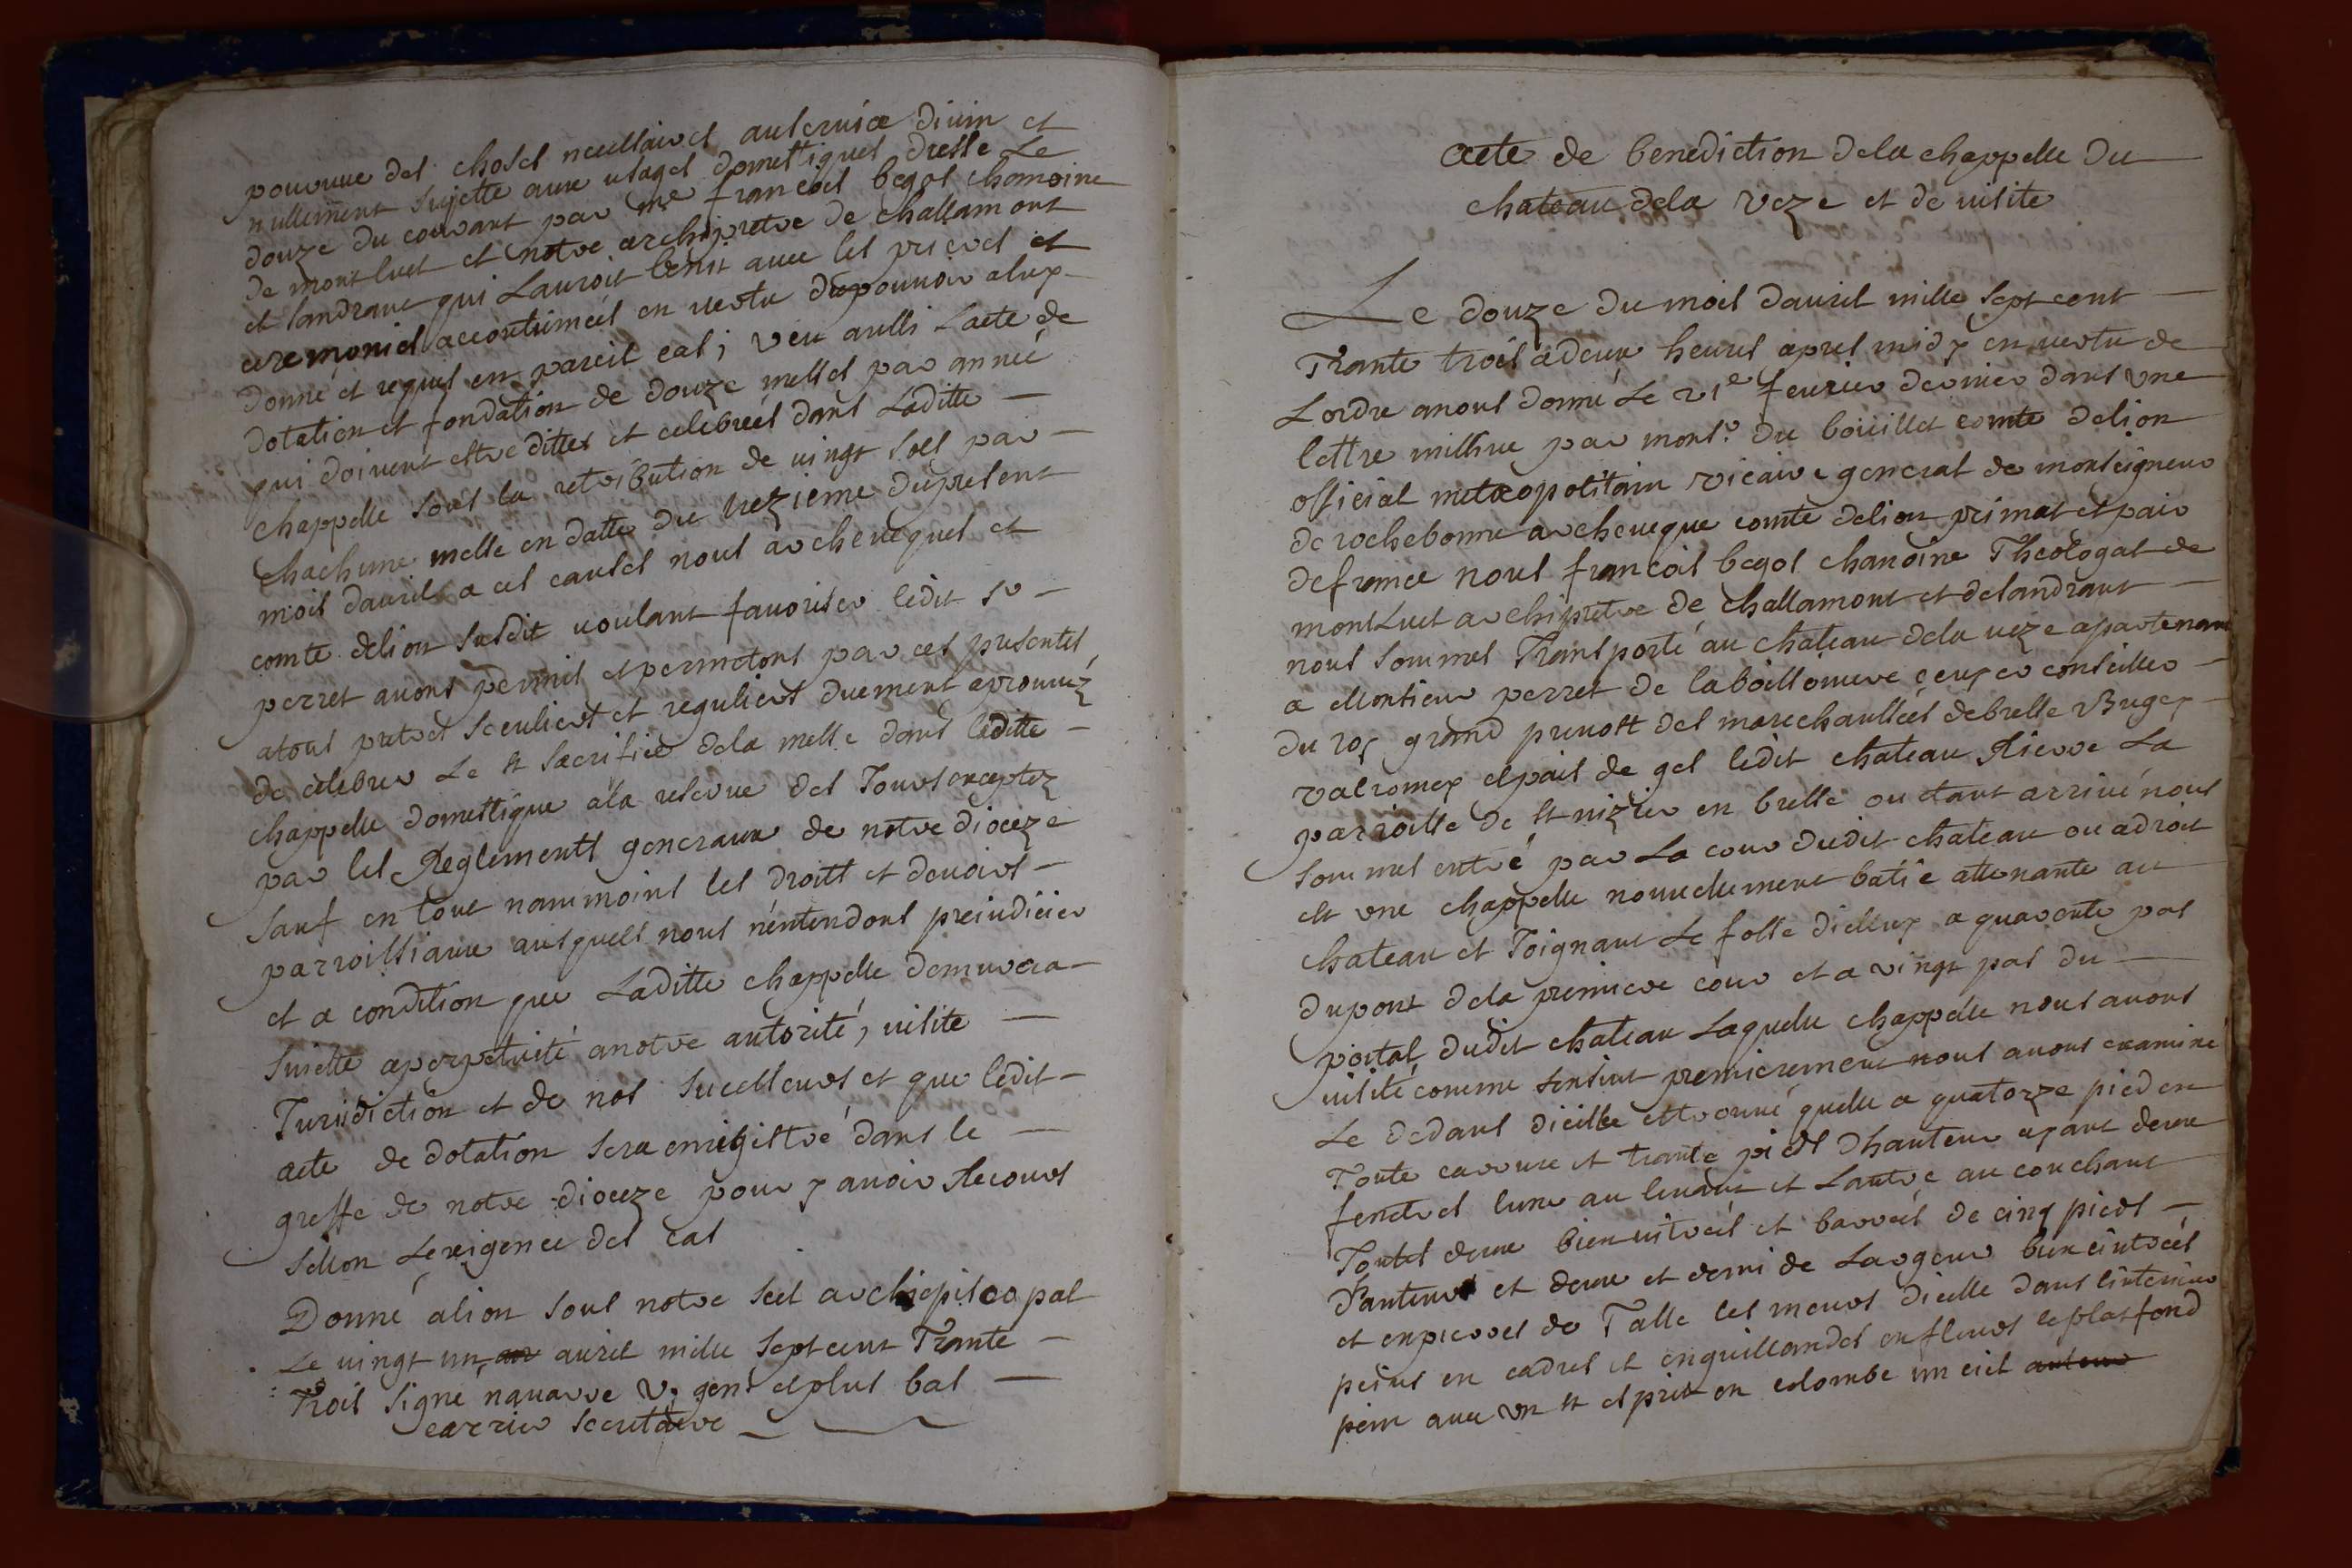 pourvue des choses necessaires au service divin et
nullement sujette aux usages domestiques dresse Le
douze du courant par me francois begos chanoine
de montluet et notre archipretre de challamont
et sandrans qui L'auroit benit avec les prieres et
ceremonies accoutumées en vertu du pouvoir a luy
donné et requis en pareil cas; veu aussi L'acte de
dotation et fondation de douze messes par année
qui doivent estre dittes et celebrées dans Laditte —
chappelle sous la retribution de vingt sols par —
chachune messe en datte du trezieme du present
mois d'avril a ces causes nous archeveques et
comte de lion susdit voulant favoriser ledit sr —
perret avons permis et permetons par ces presentes
a tous pretres seculiers et reguliers duement aprouvez
de celebrer Le st sacrifice de la messe dans laditte —
chappelle domestique a la reserve des Jours exceptez
par les Reglements generaux de notre dioceze
sauf en tout nammoins les droits et devoirs —
parroissiaux ausquels nous n'entendons preiudicier
et a condition que Laditte chappelle demurera —
suiette a perpetuité a notre autorité, visite —
Jurisdiction et de nos successeurs et que ledit —
acte de dotation sera enregistré dans le —
greffe de notre dioceze pour y avoir Recours
sellon L'exigence des cas
Donné a lion sous notre scel archiepiscopal
Le vingt un avril mille sept cent Trante —
Trois signé navarre v. gen. et plus bas —
carrier secretaire
acte de benediction de la chappelle du
chateau de la veze et de visite
Le douze du mois d'avril mille sept cent —
Trante trois a deux heures apres midy en vertu de
L'ordre a nous donné Le 21e fevrier dernier dans une
lettre missive par monsr du bouillet comte de lion
official metropolitain vicaire general de monseigneur
de rochebonne archeveque comte de lion primat et pair
de france nous francois begos chanoine Theologal de
montLuet archipretre de challamont et de sandrans —
nous sommes Transporté au chateau de la veze apartenant
a Monsieur perret de la boissonniere ecuyer conseiller —
du roy grand prevost des marechaussées de bresse Bugey —
valromey et pais de ges ledit chateau Riere La
parroisse de st nizier en bresse ou etant arrivé nous
sommes entré par La cour dudit chateau ou a droit
est une chappelle nouvellement batie attenante au
chateau et Joignant Le fosse d'icelluy a quarante pas
du pont de la premiere cour et a vingt pas du —
portal dudit chateau Laquelle chappelle nous avons
visité comme sensuit premierement nous avons examiné
Le dedans d'icelle et trouvé quelle a quatorze pied en
Toute carrure et trante pieds d'hauteur ayant deux
fenetres l'une au levant et L'autre au couchant
Toutes deux bien vitrées et barrées de cinq pieds —
d'auteur et deux et demi de Largeur bien cintrées
et en pierres de Talle les meurs d'icelle dans l'interieur
peints en cadres et enguillandes en fleurs le platfond
peint avec un st esprit en colombe un ciel autour